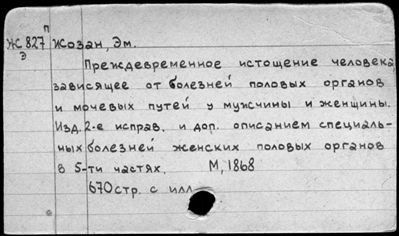 п
Ж 827 Жозан, Эм.
э
Преждевременное истощение человека,
зависящее от болезней половых органов
и мочевых путей у мужчины и женщины.
Изд. 2-е исправ. и доп. описанием специаль-
ных болезней женских половых органов
в 5-ти частях. М, 1868
670 стр. с илл